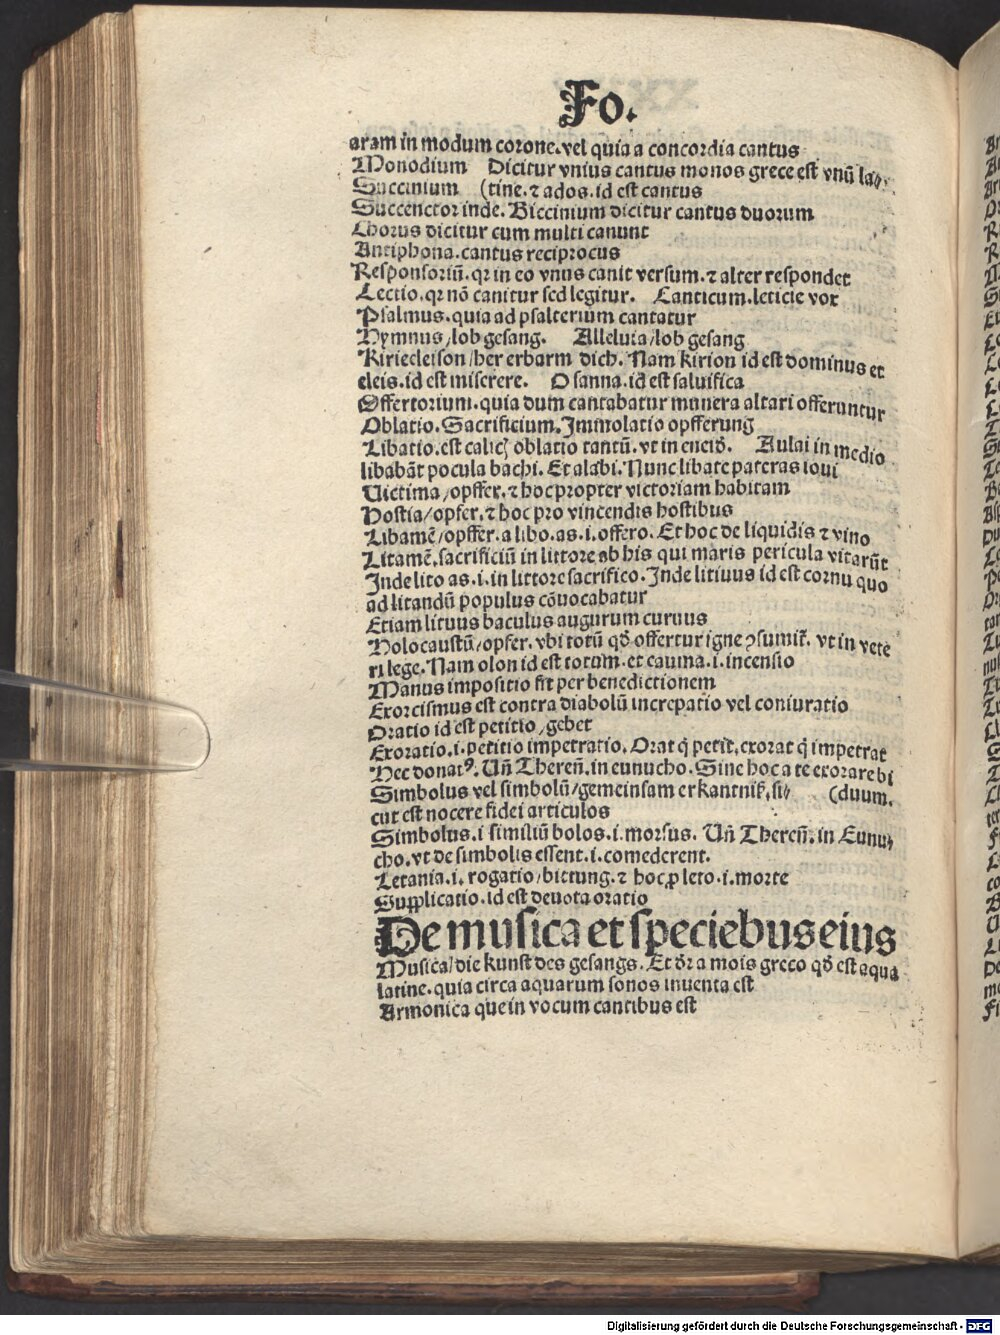 Fo.
aram in modum corone. vel quia a concordia cantus
Monodium Dicitur vnius cantus monos grece est vnū la⸗
Succinium (tine. ⁊ ados. id est cantus
Succenctor inde. Biccinium dicitur cantus duorum
Chorus dicitur cum multi canunt
Antiphona. cantus reciprocus
Responsoriū. qr in eo vnus canit versum. ⁊ alter respondet
Lectio. qr nō canitur sed legitur. Canticum. leticie vox
Psalmus. quia ad psalterium cantatur
Hymnus/lob gesang. Alleluia/lob gesang
Kirieeleison/her erbarm dich. Nam kirion id est dominus et
eleis. id est miserere. Osanna. id est saluifica
Offertorium. quia dum cantabatur munera altari offeruntur
Oblatio. Sacrificium. Immolatio opfferung
Libatio. est calicꝫ oblatio tantū. vt in eneid̄. Aulai in medio
libabāt pocula bachi. Et alabi. Nunc libate pateras ioui
Victima/opffer. ⁊ hoc propter victoriam habitam
Hostia/opfer. ⁊ hoc pro vincendis hostibus
Libamē/opffer. a libo. as. i. offero. Et hoc de liquidis ⁊ vino
Litamē. sacrificiū in littore ab his qui maris pericula vitarūt
Inde lito as. i. in littore sacrifico. Inde litiuus id est cornu quo
ad litandū populus cōuocabatur
Etiam lituus baculus augurum curuus
Holocaustū/opfer. vbi totū qd̄ offertur igne ꝯsumit᷑. vt in vete
ri lege. Nam olon id est totum. et cauma. i. incensio
Manus impositio fit per benedictionem
Exorcismus est contra diabolū increpatio vel coniuratio
Oratio id est petitio/gebet
Exoratio. i. petitio impetratio. Orat q̄ petit. exorat q̄ impetrat
Hec donatꝰ. Un̄ Theren̄. in eunucho. Sine hoc a te exorare bi
Simbolus vel simbolū/gemeinsam erkantniß. si⸗ (duum.
cut est nocere fidei articulos
Simbolus. i similiū bolos. i. morsus. Un̄ Theren̄. in Eunu⸗
cho. vt de simbolis essent. i. comederent.
Letania. i. rogatio/bittung. ⁊ hoc ꝓ leto. i. morte
Supplicatio. id est deuota oratio
De musica et speciebus eius
Musica/die kunst des gesangs. Et dr̄ a mois greco qd̄ est aqua
latine. quia circa aquarum sonos inuenta est
Armonica que in vocum cantibus est
Digitalisierung gefördert durch die Deutsche Forschungsgemeinschaft - DFG